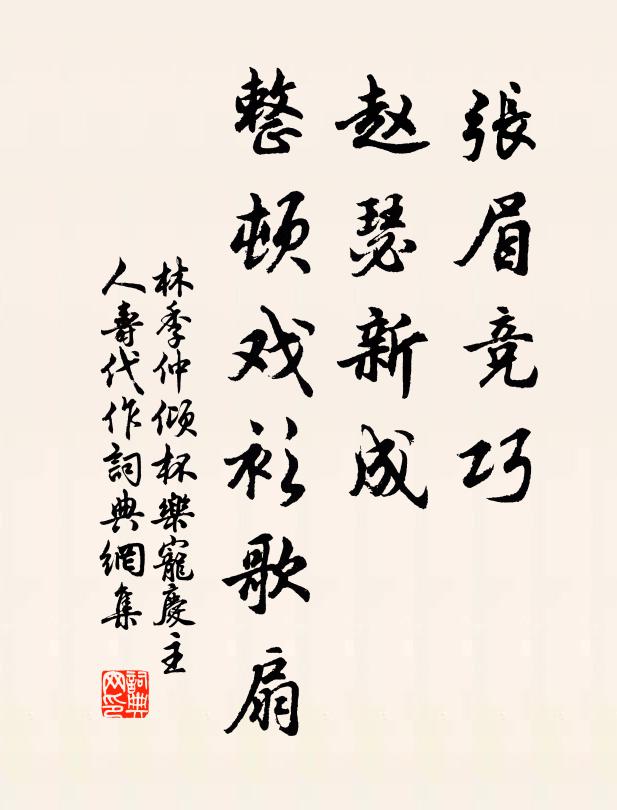 張眉竞巧
赵瑟新成
整頓戏衫歌扇
林季仲倾杯樂寵慶主
人壽代作詞典網集
詞典网印